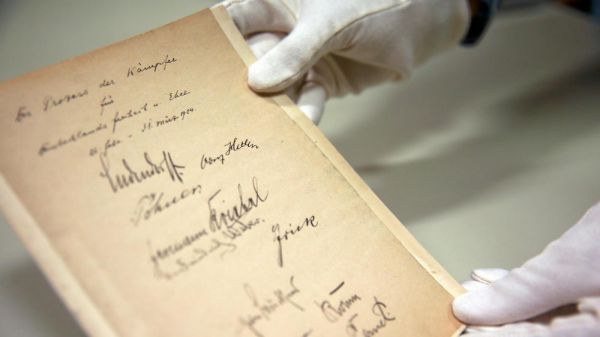 Der Prozess der Kämpfer
für
Deutschlands Freiheit u Ehre
26 Febr. - 31. März 1924
Ludendorff. Adolf Hitler
Pöhner
Hermann Kriebel
Frick
Röhm